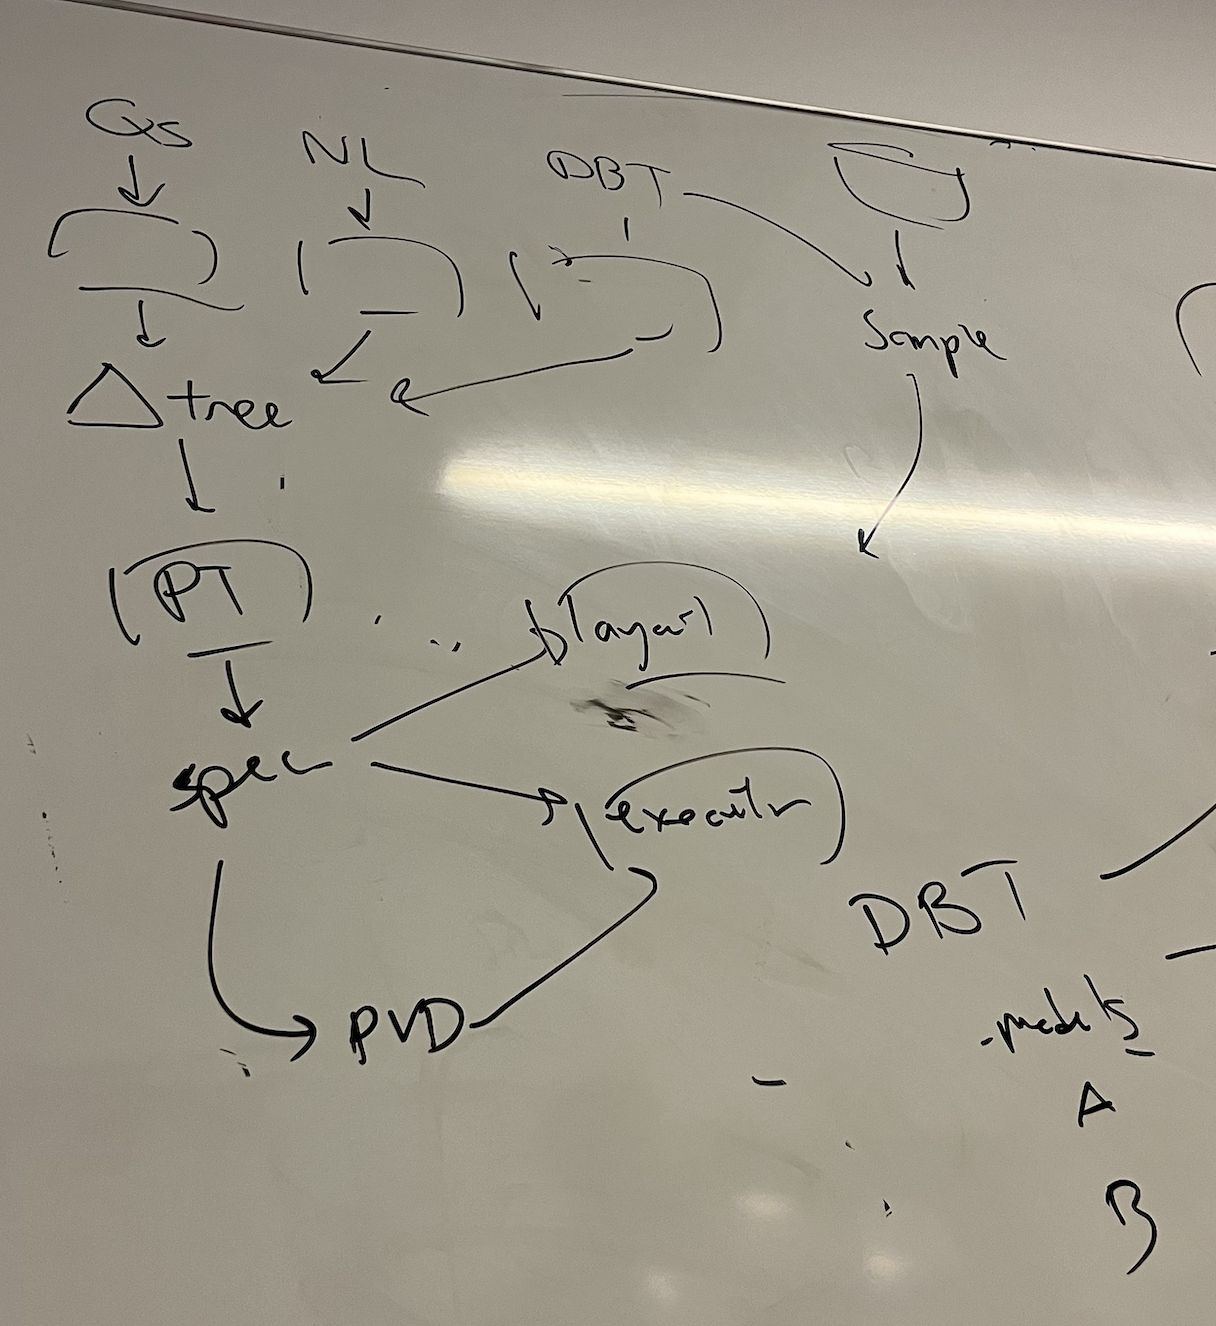 Qs
NL
DBT
Sample
Δ tree
PT
layout
spec
executor
DBT
PVD
- models
A
B